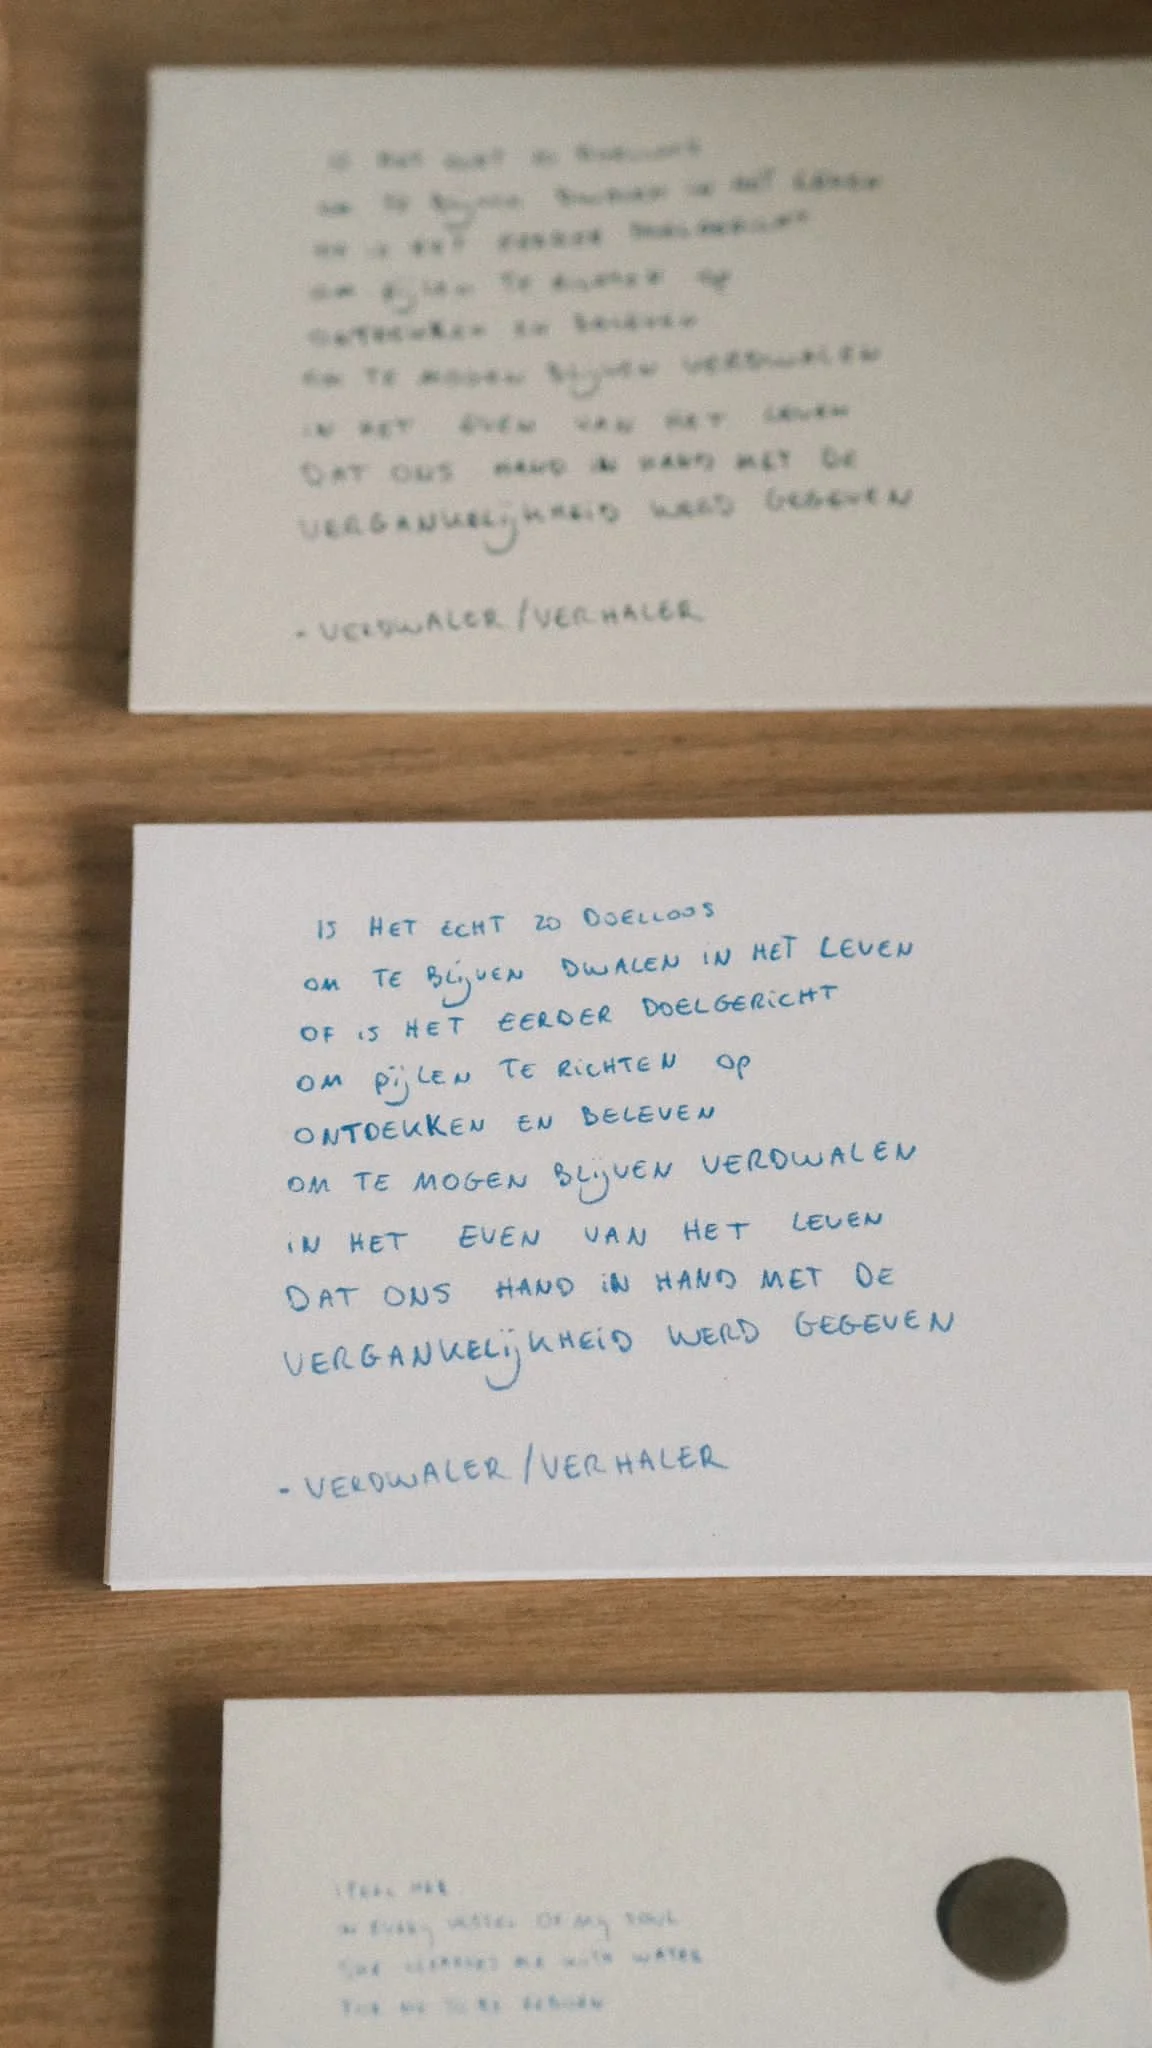 IS HET ECHT ZO DOELLOOS
OM TE BLIJVEN DWALEN IN HET LEVEN
OF IS HET EERDER DOELGERICHT
OM PIJLEN TE RICHTEN OP
ONTDEKKEN EN BELEVEN
OM TE MOGEN BLIJVEN VERDWALEN
IN HET EVEN VAN HET LEVEN
DAT ONS HAND IN HAND MET DE
VERGANKELIJKHEID WERD GEGEVEN
- VERDWALER / VERHALER
IS HET ECHT ZO DOELLOOS
OM TE BLIJVEN DWALEN IN HET LEVEN
OF IS HET EERDER DOELGERICHT
OM PIJLEN TE RICHTEN OP
ONTDEKKEN EN BELEVEN
OM TE MOGEN BLIJVEN VERDWALEN
IN HET EVEN VAN HET LEVEN
DAT ONS HAND IN HAND MET DE
VERGANKELIJKHEID WERD GEGEVEN
- VERDWALER / VERHALER
I FEEL HER
IN EVERY VESSEL OF MY SOUL
SHE CLEANSED ME WITH WATER
FOR ME TO BE REBORN